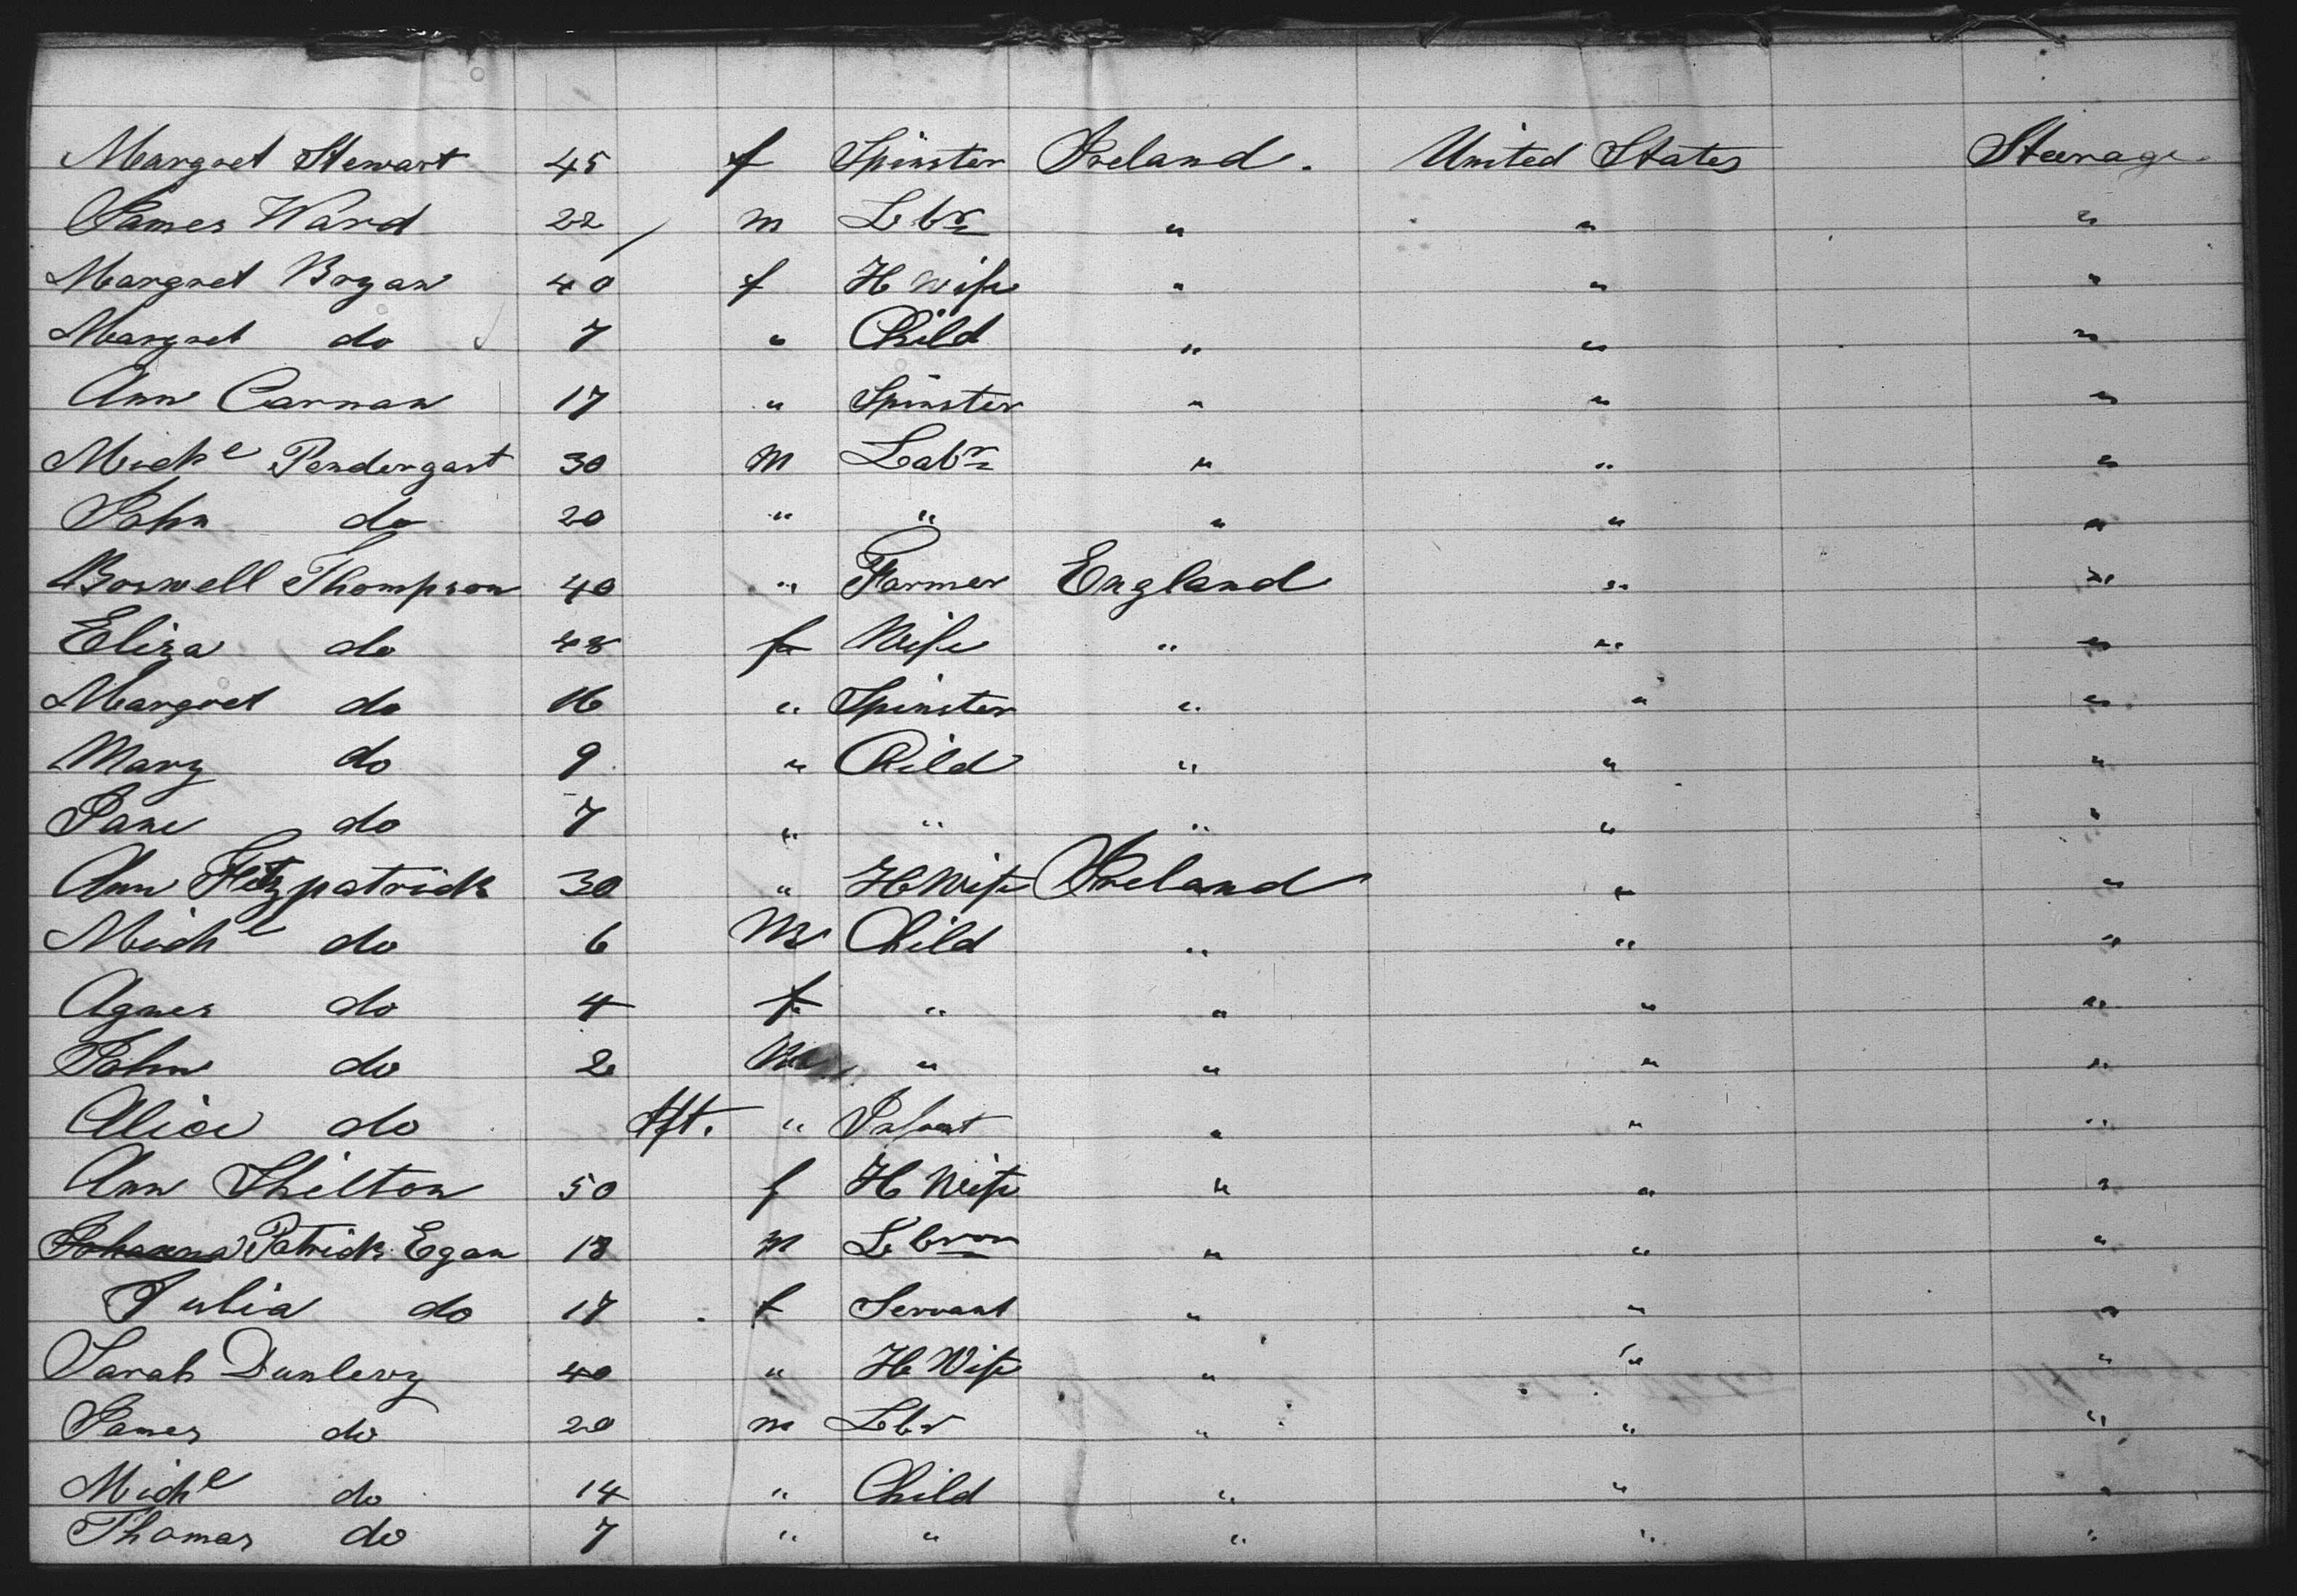 Margret Stewart 45 f Spinster Ireland. United States Steerage
James Ward 22 / m Lbr " " "
Margret Bryan 40 f H Wife " " "
Margret do 7 " Child " " "
Ann Carnan 17 " Spinster " " "
Michl Pendergast 30 m Labr " " "
John do 20 " " " " "
Boswell Thompson 40 " Farmer England " "
Eliza do 48 f Wife " " "
Margret do 16 " Spinster " " "
Mary do 9 " Child " " "
Jane do 7 " " " " "
Ann Fitzpatrick 30 " H Wife Ireland " "
Michl do 6 M Child " " "
Agnes do 4 f " " " "
John do 2 M " " " "
Alice do " Infant " " "
Ann Shilton 50 f H Wife " " "
Johanna Patrick Egan 18 m " " "
Julia do 17 f Servant " " "
Sarah Dunlevy 40 " H Wife " " "
James do 20 m Lbr " " "
Michl do 14 " Child " " "
Thomas do 7 " " " " "